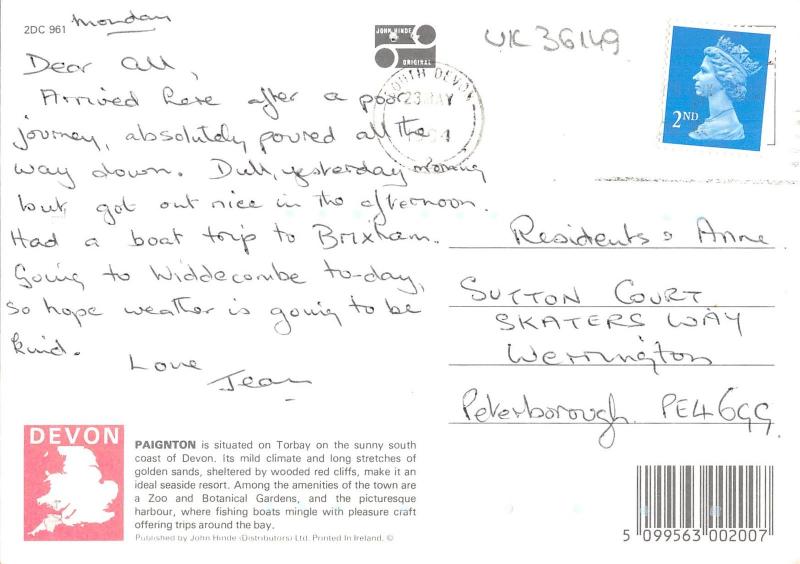 2DC 961
Monday
JOHN HINDE
ORIGINAL
UK 36149
2ND
NORTH DEVON
23 MAY
Dear All,
Arrived here after a poor
journey, absolutely poured all the
way down. Dull, yesterday morning
but got out nice in the afternoon.
Had a boat trip to Brixham.
Going to Widdecombe to-day,
so hope weather is going to be
kind.
Love
Jean
Residents & Anne
SUTTON COURT
SKATERS WAY
Werrington
Peterborough. PE4 6GG.
DEVON
PAIGNTON is situated on Torbay on the sunny south
coast of Devon. Its mild climate and long stretches of
golden sands, sheltered by wooded red cliffs, make it an
ideal seaside resort. Among the amenities of the town are
a Zoo and Botanical Gardens, and the picturesque
harbour, where fishing boats mingle with pleasure craft
offering trips around the bay.
Published by John Hinde (Distributors) Ltd. Printed In Ireland. ©
5 099563 002007